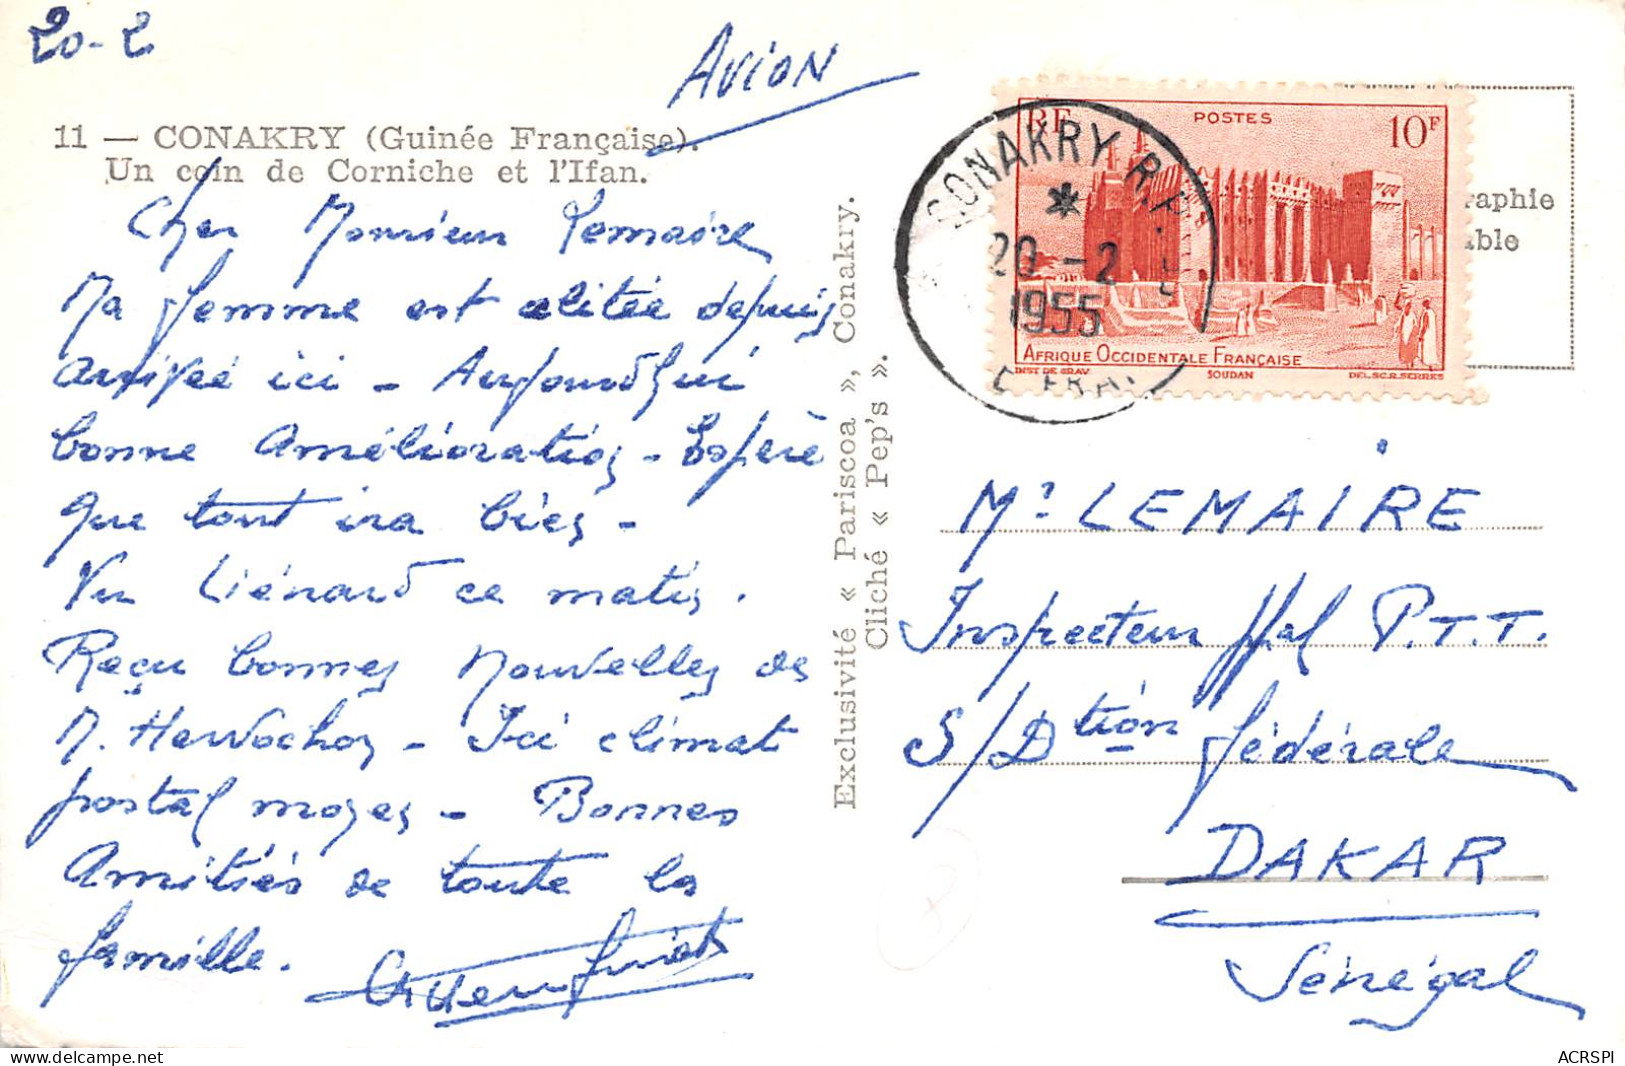 20-2
AVION
11 — CONAKRY (Guinée Française).
Un coin de Corniche et l'Ifan.
Cher Monsieur Lemaire
Ma femme est alitée depuis
arrivée ici - Aujourd'hui
bonne amélioration - Espère
que tout ira bien -
Vu Liénard ce matin.
Reçu bonnes nouvelles de
M. - Ici climat
postal moyen - Bonnes
Amitiés de toute la
famille.
Exclusivité « Pariscoa », Conakry.
Cliché « Pep's ».
RF POSTES 10F
AFRIQUE OCCIDENTALE FRANÇAISE
INST DE GRAV. SOUDAN DEL.SC.R.SERRES
CONAKRY R.P.
20 -2
1955
raphie
able
Mr LEMAIRE
Inspecteur Ppal P.T.T.
S/Dtion fédérale
DAKAR
Sénégal
delcampe.net
ACRSPI